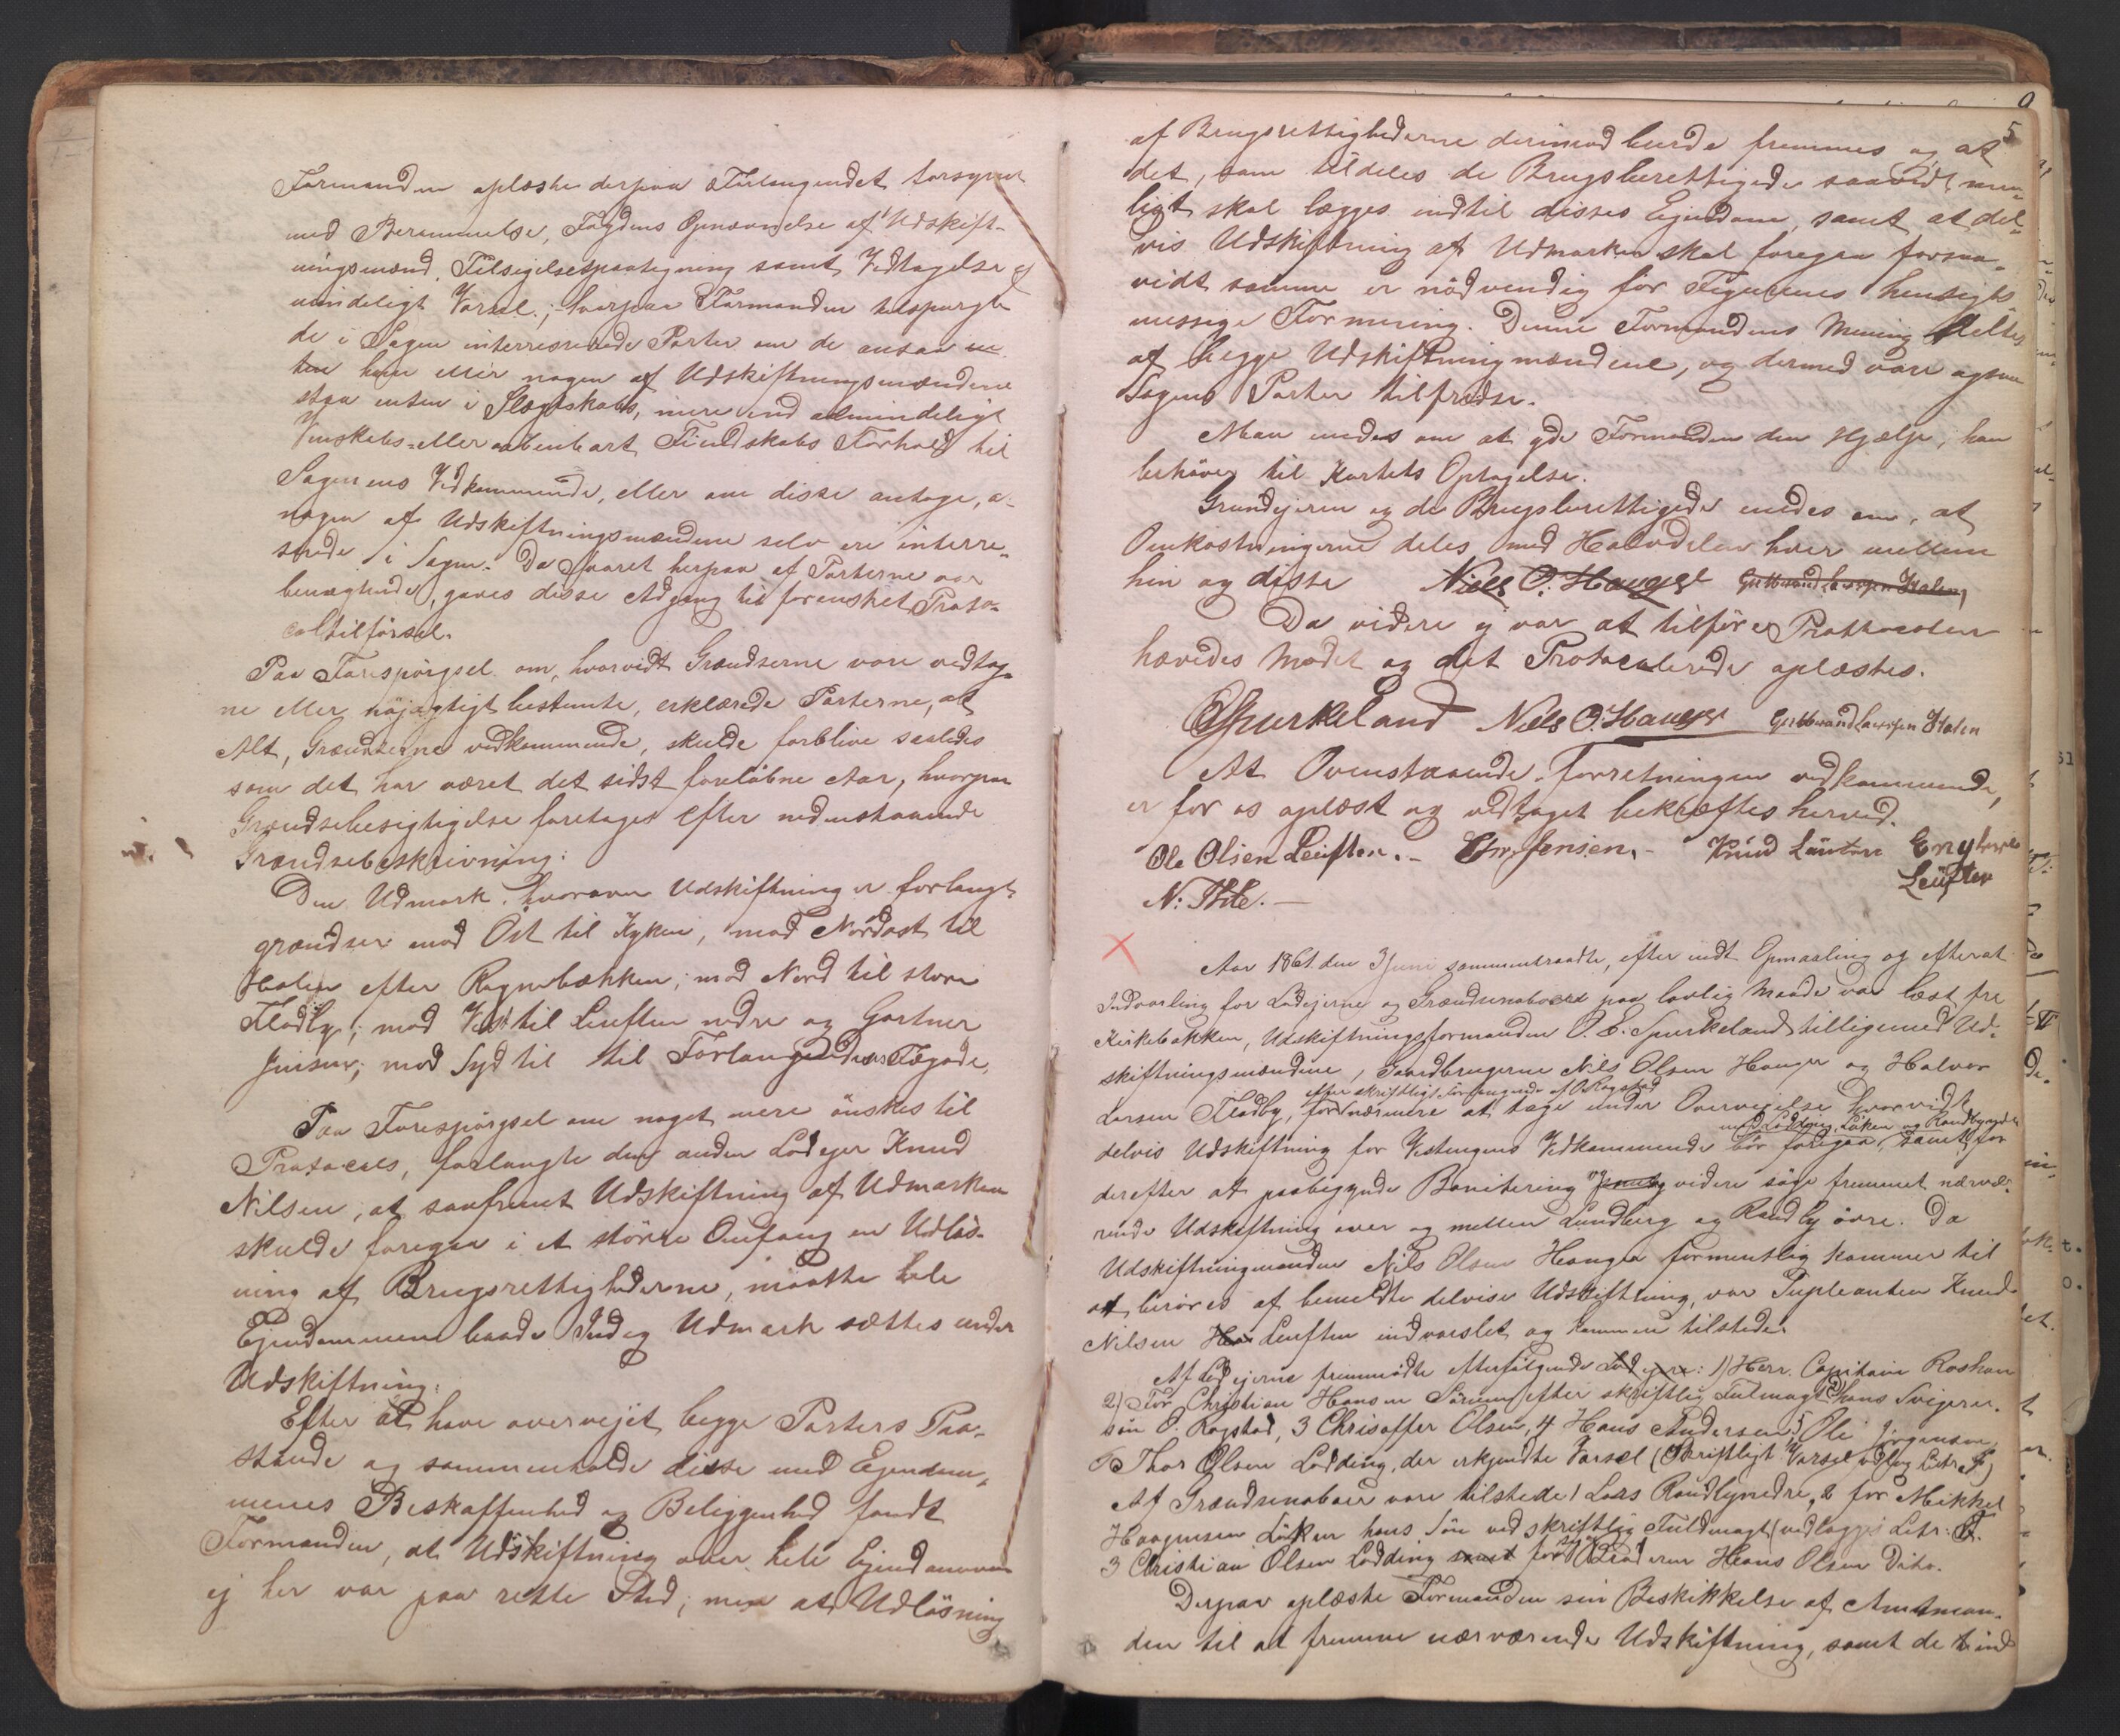 Formanden oplæste derpaa Forlangendet forsynet
med Berammelse, Fogdens Opnævnelse af Udskift-
ningsmænd, Tilsigelsespaategning samt Vedtagelse af
mindeligt Varsel; hvorpaa Formanden tilspurgte
de i Sagen interresserede Parter om de ansaa en-
ten ham eller nogen af Udskiftningsmændene
staa enten i Slægtskabs, mere end almindeligt
Venskabs- eller aabenbart Fiendskabs Forhold til
Sagens Vedkommende, eller om disse antage, a-
nogen af Udskiftningsmændene selv ere interre-
serede i Sagen. Da Svaret herpaa af Parterne var
benægtende, gaves disse Adgang til forønsket Proto-
coltilførsel.
Paa Forespørgsel om, hvorvidt Grændserne vare vedtag-
ne eller nøjagtigt bestemte, erklærede Parterne, at
Alt, Grændserne vedkommende, skulde forblive saaledes
som det har været det sidst forløbne Aar, hvorpaa
Grændsebesigtigelse foretages efter nedenstaaende
Grændsebeskrivning:
Den Udmark, hvorover Udskiftning er forlangt
grændser mod Öst til Kyken, mod Nordost til
Holen efter Ragnbækken; mod Nord til store
Fladby; mod Vest til Leuften nedre og Gartner
Jensen; mod Syd til til Forlangendes Jægode.
Paa Forespørgsel om noget mere ønskes til
Protocols, forlangte den anden Lodejer Knud
Nilsen, at saafremt Udskiftning af Udmarken
skulde foregaa i et større Omfang en Udløs-
ning af Brugsrettighederne, maatte hele
Ejendommen baade Ind og Udmark sættes under
Udskiftning.
Efter at have overvejet begge Parters Paa-
stande og sammenholde disse med Ejendom-
menes Beskaffenhed og Beliggenhed fandt
Formanden, at Udskiftning over hele Ejendommen
ej her var paa rette Sted; men at Udløsning
5
af Brugsrettighederne derimod burde fremmes og at
det, som tildeles de Brugsberettigede saavidt mu-
ligt skal lægges indtil disses Ejendom, samt at del-
vis Udskiftning af Udmarken skal foregaa forsaa-
vidt samme er nødvendig for Figurens hensigts
mæssige Formering. Denne Formandens Mening deltes
af begge Udskiftningmændene, og dermed vare ogsaa
Sagens Parter tilfredse.
Man enedes om at yde Formanden den Hjælp, han
behøver til Kartets Optagelse.
Grundejeren og de Brugsberettigede enedes om, at
Omkostningerne deles med Halvdelen hver mellem
hin og disse Niels O. Hauger Guttorm Larssen Holen
Da videre ej var at tilføre Prothocolen
hævedes Mødet og det Protocolerede oplæstes.
OSpurkeland Niels O. Hauger Larssen Holen
At Ovenstaaende Forretningen vedkommende,
er for os oplæst og vedtaget bekræftes herved.
Ole Olsen Leuften. – Chr. Jensen. – Knud Leuten
Leuften
N: Thle. –
Aar 1861 den 3 Juni sammentraadte, efter endt Opmaaling og efterat
Indvarsling for Lodejerne og Grændsenaboer paa lovlig Maade var læst fra
Kirkebakken, Udskiftningsformanden O. E. Spurkeland tilligemed Ud-
skiftningsmændene, Gaardbrugerne Nils Olsen Hauger og Halvor
efter skriftligt Forlangende af O. Rogstad
Larsen Fladby, for nærmere at tage under Overvejelse hvorvidt
med Lodding, Løken og Randbynedre
delvis Udskiftning for Vestengens Vedkommende bør foregaa, samt for
derefter at paabegynde Bonitering videre søge fremmet nærvæ-
rende Udskiftning over og mellem Lundberg og Randby øvre. Da
Udskiftningmanden Nils Olsen Hauger formentlig kommer til
at berøres af bemeldte delvise Udskiftning, var Supleanten Knud
Nilsen Leuften indvarslet og kommen tilstede.
Af Lodejerne fremmødte efterfølgende Lodejere: 1) Herr Capitain Roshau
2) For Christian Hansen Sørum efter skriftlig Fulmagt hans Svigersø-
søn O. Rogstad, 3 Chrisoffer Olsen, 4 Hans Andersen, 5 Ole Jørgensen,
6 Thor Olsen Lodding, der erkjendte Varsel (Skriftligt Varsel vedlagt Litr. F)
Af Grændsenaboer vare tilstede 1 Lars Randbynedre, 2 for Mikkel
Haagensen Løken hans Søn ved skriftlig Fuldmagt (vedlægges Litr.
3 Christian Olsen Lodding samt for sin Broderen Hans Olsen Dito.
Derpaa oplæste Formanden sin Beskikkelse af Amtman-
den til at fremme nærværende Udskiftning, samt de tvind